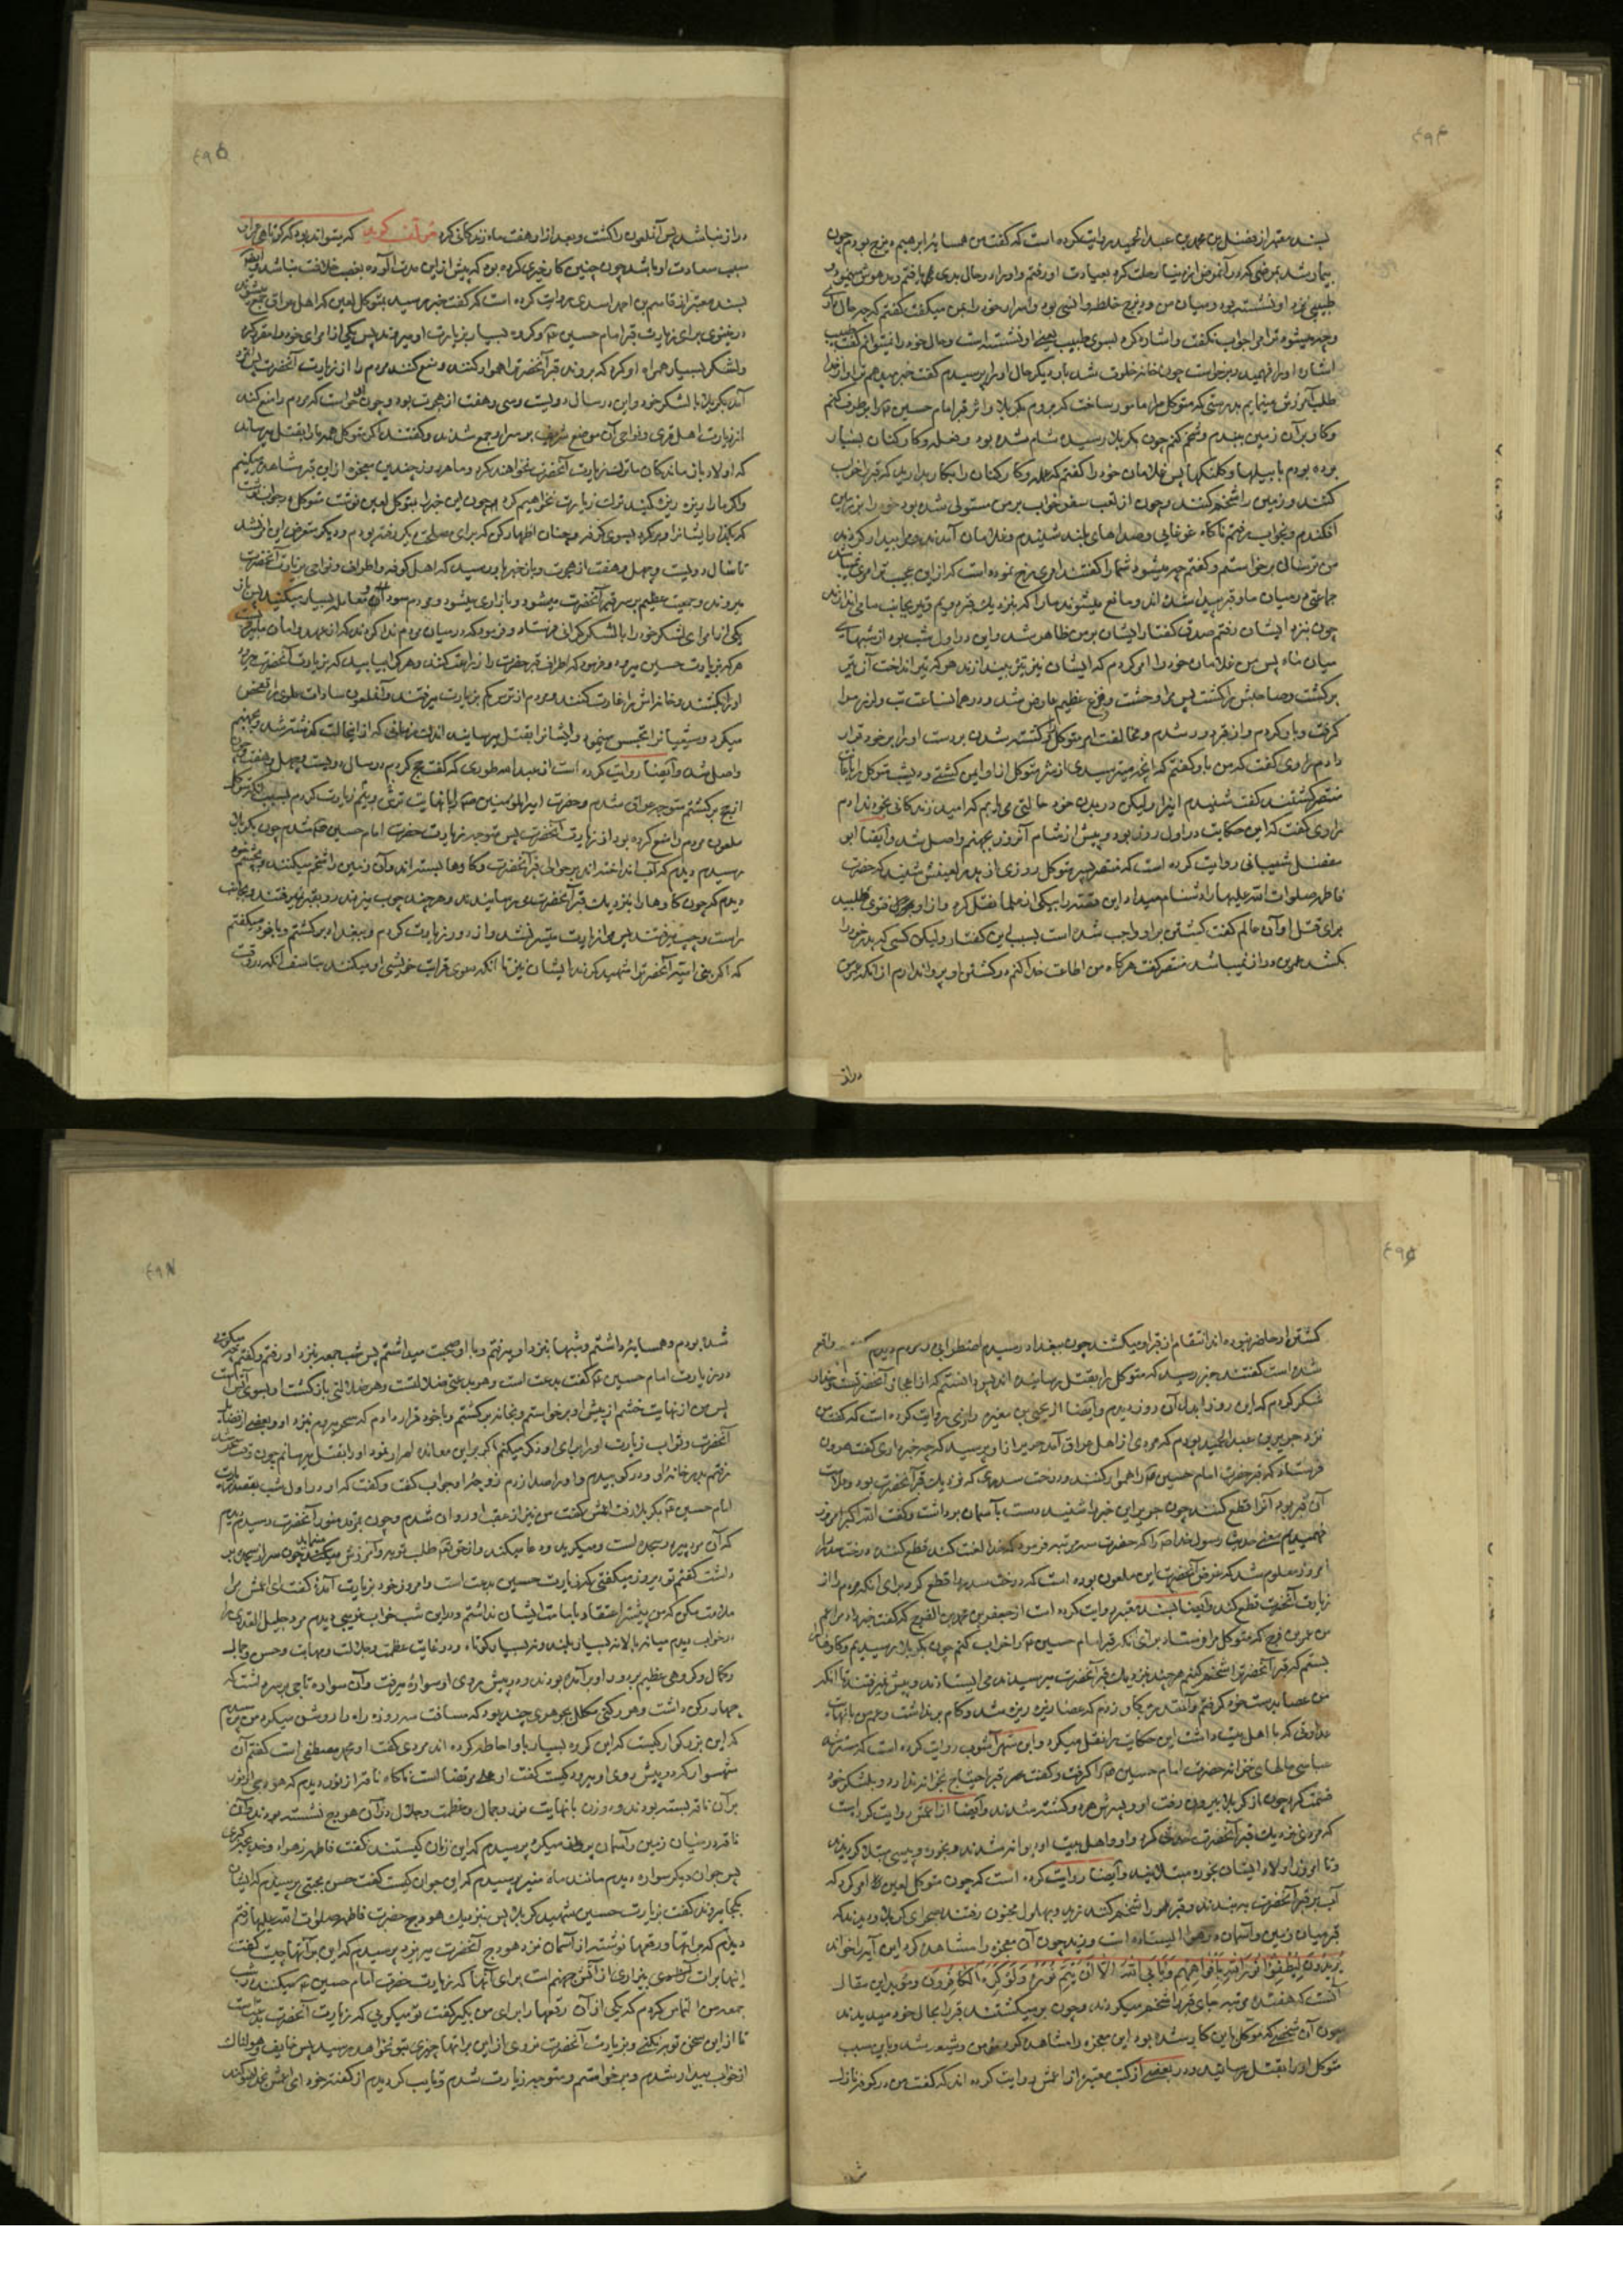 ۴۹۴
بسند معتبر از فضل بن محمد بن عبد الحمید روایت کرده است که گفت من همسایه ابراهیم دیزج بودم چون
بیمار شد بمرضی که در آنمرض از دنیا رحلت کرد بعیادت او رفتم و او را در حال بدی یافتم و مدهوش مینمود و
طبیبی نزد او نشسته بود و میان من و دیزج خلطه و انسی بود و اسرار خود را بمن میگفت گفتم که چه حال داری
و چه میشود ترا مرا جواب نگفت و اشاره کرد بسوی طبیب یعنی او نشسته است و حال خود را نمیتوانم گفت طبیب
اشاره او را فهمید و برخواست چون خانه خلوت شد بار دیگر حال او را پرسیدم گفت خبر میدهم ترا و از خدا
طلب آمرزش مینمایم بدرستی که متوکل مرا مأمور ساخت که بروم بکربلا و اثر قبر امام حسین را برطرف کنم
و گاو بر آن زمین ببندم و شخم کنم چون بکربلا رسیدم شام شده بود و فعله و کارکنان بسیار
برده بودم با بیلها و کلنگها پس غلامان خود را گفتم که عمله و کارکنان را بکار بدارید که قبر را خراب
کنند و زمین را شخم کنند و چون از تعب سفر خواب بر من مستولی شده بود خود را بر زمین
افکندم و بخواب رفتم ناگاه غوغایی و صداهای بلند شنیدم و غلامان آمدند و مرا بیدار کردند
من ترسان برخواستم و گفتم چه میشود شما را گفتند امری رخ نموده است که از این عجیب تر امری نمیباشد
جماعتی در میان ما و قبر پیدا شده اند و مانع میشوند ما را که بنزدیک قبر رویم و تیر بجانب ما می اندازند
چون بنزد ایشان رفتم صدق گفتار ایشان بر من ظاهر شد و این در اول شب بود از شبهای
میان ماه پس من غلامان خود را امر کردم که ایشان نیز تیر بیندازند هر که تیر انداخت آن تیر
برگشت و صاحبش را کشت پس مرا وحشت و فزع عظیم عارض شد و در همانساعت تب و لرز مرا
گرفت و بار کردم و از قبر دور شدم و مخالفت امر متوکل و کشته شدن بر دست او را بر خود قرار
دادم راوی گفت که من باو گفتم که آنچه میترسیدی از شر متوکل از او ایمن گشتی دیشب متوکل را باعانت
منتصر کشتند گفت شنیدم اینرا ولیکن در بدن خود حالتی می یابم که امید زندگانی بخود ندارم
راوی گفت که این حکایت در اول روز بود و پیش از شام آنروز بجهنم واصل شد و ایضا ابو
مفضل شیبانی روایت کرده است که منتصر پسر متوکل روزی از پدر لعینش شنید که حضرت
فاطمه صلوات الله علیها را دشنام میداد این قصه را بیکی از علما نقل کرد و از او فتوی طلبید
برای قتل او آن عالم گفت کشتن بر او واجب شده است بسبب این گفتار ولیکن کسی که پدر خود را
بکشد عمرش دراز نمیباشد منتصر گفت هرگاه من اطاعت خدا کنم در کشتن او پروا ندارم از آنکه عمرم
دراز
۴۹۵
دراز نباشد پس آنلعون را کشت و بعد از او هفت ماه زندگانی کرد مؤلف گوید که میتواند بود که کوتاهی عمر او
سبب سعادت او باشد چون چنین کار خیری کرده بود که پیش از این مدت آلوده بغصب خلافت نباشد و ایضا
بسند معتبر از قاسم بن احمد اسدی روایت کرده است که گفت خبر رسید بمتوکل لعین که اهل عراق جمع میشوند
در نینوی برای زیارت قبر امام حسین و گروه بسیار بزیارت او میروند پس یکی از امرای خود را مقرر کرد
و لشکر بسیار همراه او کرد که بروند قبر آنحضرت را هموار کنند و منع کنند مردم را از زیارت آنحضرت
آمد بکربلا با لشکر خود و این در سال دویست و سی و هفت از هجرت بود و چون خواست که مردم را منع کند
از زیارت اهل قری و نواحی آن موضع شریف بر سر او جمع شدند و گفتند اگر متوکل همه ما را بقتل میرساند
که اولاد باز ماندگان ما ترک زیارت آنحضرت نخواهند کرد و ما هر روز چندین معجزه از این قبر مشاهده میکنیم
و اگر ما را ریزه ریزه کنید ترک زیارت نخواهیم کرد چون این خبر را بمتوکل لعین نوشت متوکل در جواب نوشت
که بگذار ایشانرا و برگرد بسوی کوفه و چنان اظهار کن که برای مصلحتی دیگر رفته بودم و دیگر متعرض این امر نشد
تا سال دویست و چهل و هفت از هجرت و باز خبر باو رسید که اهل کوفه و اطراف و نواحی بزیارت آنحضرت
میروند و جمعیت عظیم بر سر قبر آنحضرت میشود و بازاری میشود و مردم سودا و معامله بسیار میکنند پس باز
یکی از امرای لشکر خود را با لشکر گران فرستاد و فرمود که در میان مردم ندا کردند که از عهد و امان ما بریست
هر که بزیارت حسین میرود و فرمود که اطراف قبر حضرت را زراعت کنند و هر که را بیابید که بزیارت آنحضرت میرود
او را بکشند و خانه اش را غارت کنند و مردم از ترس کم بزیارت میرفتند و آنلعون سادات علوی را تفحص
میکرد و شیعیانرا تجسس مینمود و ایشانرا بقتل میرسانید اندک زمانی که از اینحالت گذشت کشته شد و بجهنم
واصل شد و ایضا روایت کرده است از عبد الله طوری که گفت حج کردم در سال دویست و چهل و هفت
از حج برگشتم متوجه عراق شدم و حضرت امیر المؤمنین را با نهایت ترس و بیم زیارت کردم بسبب آنکه متوکل
ملعون مردم را منع کرده بود از زیارت آنحضرت پس متوجه زیارت حضرت امام حسین شدم چون بکربلا
رسیدم دیدم که آب انداخته اند بر حوالی قبر آنحضرت و گاوها بسته اند و آن زمین را شخم میکنند و بچشم خود
دیدم که چون گاوها را بنزدیک قبر آنحضرت میرسانیدند هر چند چوب میزدند رو بقبر نمیرفتند و بجانب
راست و چپ میرفتند پس مرا زیارت میسر نشد و از دور زیارت کردم و ببغداد برگشتم و با خود میگفتم
که اگر بنی امیه آنحضرت را شهید کردند ایشان نیز با آنکه دعوی قرابت خویشی او میکنند متاسف اند که در وقت
۴۹۶
کشتن او حاضر نبوده اند انتقام از قبر او میکشند چون ببغداد رسیدم اضطرابی در مردم دیدم گفتم واقع
شده است گفتند خبر رسید که متوکل را بقتل رسانیده اند پس دانستم که از اعجاز آنحضرت است خدا را
شکر کردم که این روز را بدل آن روز دیدم و ایضا از یحیی بن مغیره رازی روایت کرده است که گفت من
نزد جریر بن عبد الحمید بودم که مردی از اهل عراق آمد جریر از او پرسید که چه خبر داری گفت هرون
فرستاد که قبر حضرت امام حسین را هموار کنند و درخت سدری که نزدیک قبر آنحضرت بود و علامت
آن قبر بود آنرا قطع کنند چون جریر این خبر را شنید دست بآسمان برداشت و گفت الله اکبر امروز
فهمیدم معنی حدیث رسول خدا را که حضرت سه مرتبه فرمود که خدا لعنت کند قطع کننده درخت سدر را
امروز معلوم شد که غرض آنحضرت این ملعون بوده است که درخت سدر را قطع کرد برای آنکه مردم را از
زیارت آنحضرت قطع کند و ایضا بسند معتبر روایت کرده است از جعفر بن محمد بن الفرج که گفت خبر داد مرا عم
من عمر بن فرج که متوکل مرا فرستاد برای آنکه قبر امام حسین را خراب کنم چون بکربلا رسیدم گاوها را
بستم که قبر آنحضرت را شخم کنم هر چند نزدیک قبر آنحضرت میرسیدند می ایستادند و پیش نمیرفتند تا آنکه
من عصا بدست خود گرفتم و آنقدر بر گاو زدم که عصا ریزه ریزه شد و گام برنداشت و عمر بن بانهایت
عداوتی که با اهل بیت داشت این حکایت را نقل میکرد و ابن شهر آشوب روایت کرده است که مسترشد
عباسی مالهای خزانه حضرت امام حسین را گرفت و گفت قبر احتیاج بخزانه ندارد و بلشکر خود
قسمت کرد چون از کربلا بیرون رفت او و پسرش هر دو کشته شدند و ایضا از اعمش روایت کرده است
که مردی نزدیک قبر آنحضرت کرد و او و اهل بیت او دیوانه شدند و بخوره و پیسی مبتلا گردیدند
و تا امروز اولاد ایشان بخوره مبتلایند و ایضا روایت کرده است که چون متوکل لعین امر کرد که
آب بر قبر آنحضرت ببندند و قبر را شخم کنند زید و بهلول مجنون رفتند بصحرای کربلا و دیدند که
قبر میان زمین و آسمان در هوا ایستاده است و زید چون آن معجزه را مشاهده کرد این آیه را خواند
یُرِیدُونَ لِیُطْفِئُوا نُورَ اللهِ بِأَفْوَاهِهِمْ وَیَأْبَی اللهُ إِلَّا أَنْ یُتِمَّ نُورَهُ وَلَوْ کَرِهَ الْکَافِرُونَ و مؤید این مقال
آنست که هفده مرتبه جای قبر را شخم میکردند و چون برمیگشتند قبر را بحال خود میدیدند
چون آن شخصی که موکل باین کار شده بود این معجزه را مشاهده کرد مؤمن و شیعه شد و باین سبب
متوکل او را بقتل رسانید و در بعضی از کتب معتبره از اعمش روایت کرده اند که گفت من در کوفه نازل
شده
۴۹۷
شده بودم و همسایه داشتم و شبها بنزد او میرفتم و با او صحبت میداشتم پس شب جمعه بنزد او رفتم و گفتم چه میگویی
در زیارت امام حسین گفت بدعت است و هر بدعتی ضلالتست و هر ضلالتی بازگشت او بسوی آتش است
پس من از نهایت خشم از پیش او برخواستم و بخانه برگشتم و با خود قرار دادم که سحر میروم نزد او و بعضی از فضائل
آنحضرت و ثواب زیارت او را برای او ذکر میکنم اگر بر این معانده اصرار نمود او را بقتل میرسانم چون وقت سحر شد
رفتم بدر خانه او و در کوبیدم و او را صدا زدم زوجه او جواب گفت و گفت که او در اول شب بقصد زیارت
امام حسین بکربلا رفت اعمش گفت من نیز از عقب او روان شدم و چون بمرقد منور آنحضرت رسیدم دیدم
که آن مرد پیر در سجده است و میگرید و دعا میکند و از حق طلب توبه و آمرزش مینماید چون سر از سجده بر
داشت گفتم تو دیروز میگفتی که زیارت حسین بدعت است و امروز خود بزیارت آمده گفت ای اعمش مرا
ملامت مکن که من پیشتر اعتقاد بامامت ایشان نداشتم و در این شب خواب غریبی دیدم مرد جلیل القدری را
در خواب دیدم میانه بالا نه بسیار بلند و نه بسیار کوتاه و در غایت عظمت و جلالت و مهابت و حسن و جمال
و کمال و گروهی عظیم بر دور او بر آمده بودند و در پیش روی او سواره میرفت و آن سواره تاجی بر سر داشت که
چهار رکن داشت و هر رکنی مکلل بجوهری چند بود که مسافت سه روزه راه را روشن میکرد من پرسیدم
که این بزرگوار کیست که این گروه بسیار باو احاطه کرده اند مردی گفت او محمد مصطفی است گفتم آن
شهسوار که در پیش روی او میرود کیست گفت او علی مرتضا است ناگاه ناقه از نور دیدم که هودجی از نور
بر آن ناقه بسته بودند و دو زن با نهایت نور و جمال و عظمت و جلال در آن هودج نشسته بودند و آن
ناقه در میان زمین و آسمان پرواز میکرد پرسیدم که این زنان کیستند گفت فاطمه زهراء و خدیجه کبری
پس جوان دیگر سواره دیدم مانند ماه منیر پرسیدم که این جوان کیست گفت حسن مجتبی پرسیدم که ایشان
بکجا میروند گفت بزیارت حسین شهید کربلا پس بنزدیک هودج حضرت فاطمه صلوات الله علیها رفتم
دیدم که براتها و رقعها نوشته از آسمان نزد هودج آنحضرت میریزد پرسیدم که این براتها چیست گفت
اینها برات آزادی بیزاری از آتش جهنم است برای آنها که زیارت حضرت امام حسین میکنند در شب
جمعه من التماس کردم که یکی از آن رقعها را برای من بگیر گفت تو میگویی که زیارت آنحضرت بدعت است
تا از این سخن توبه نکنی و بزیارت آنحضرت نروی از این براتها چیزی بتو نخواهد رسید پس خایف و هولناک
از خواب بیدار شدم و برخواستم و متوجه زیارت شدم و تایب گردیدم از گفته خود ای اعمش بخدا سوگند